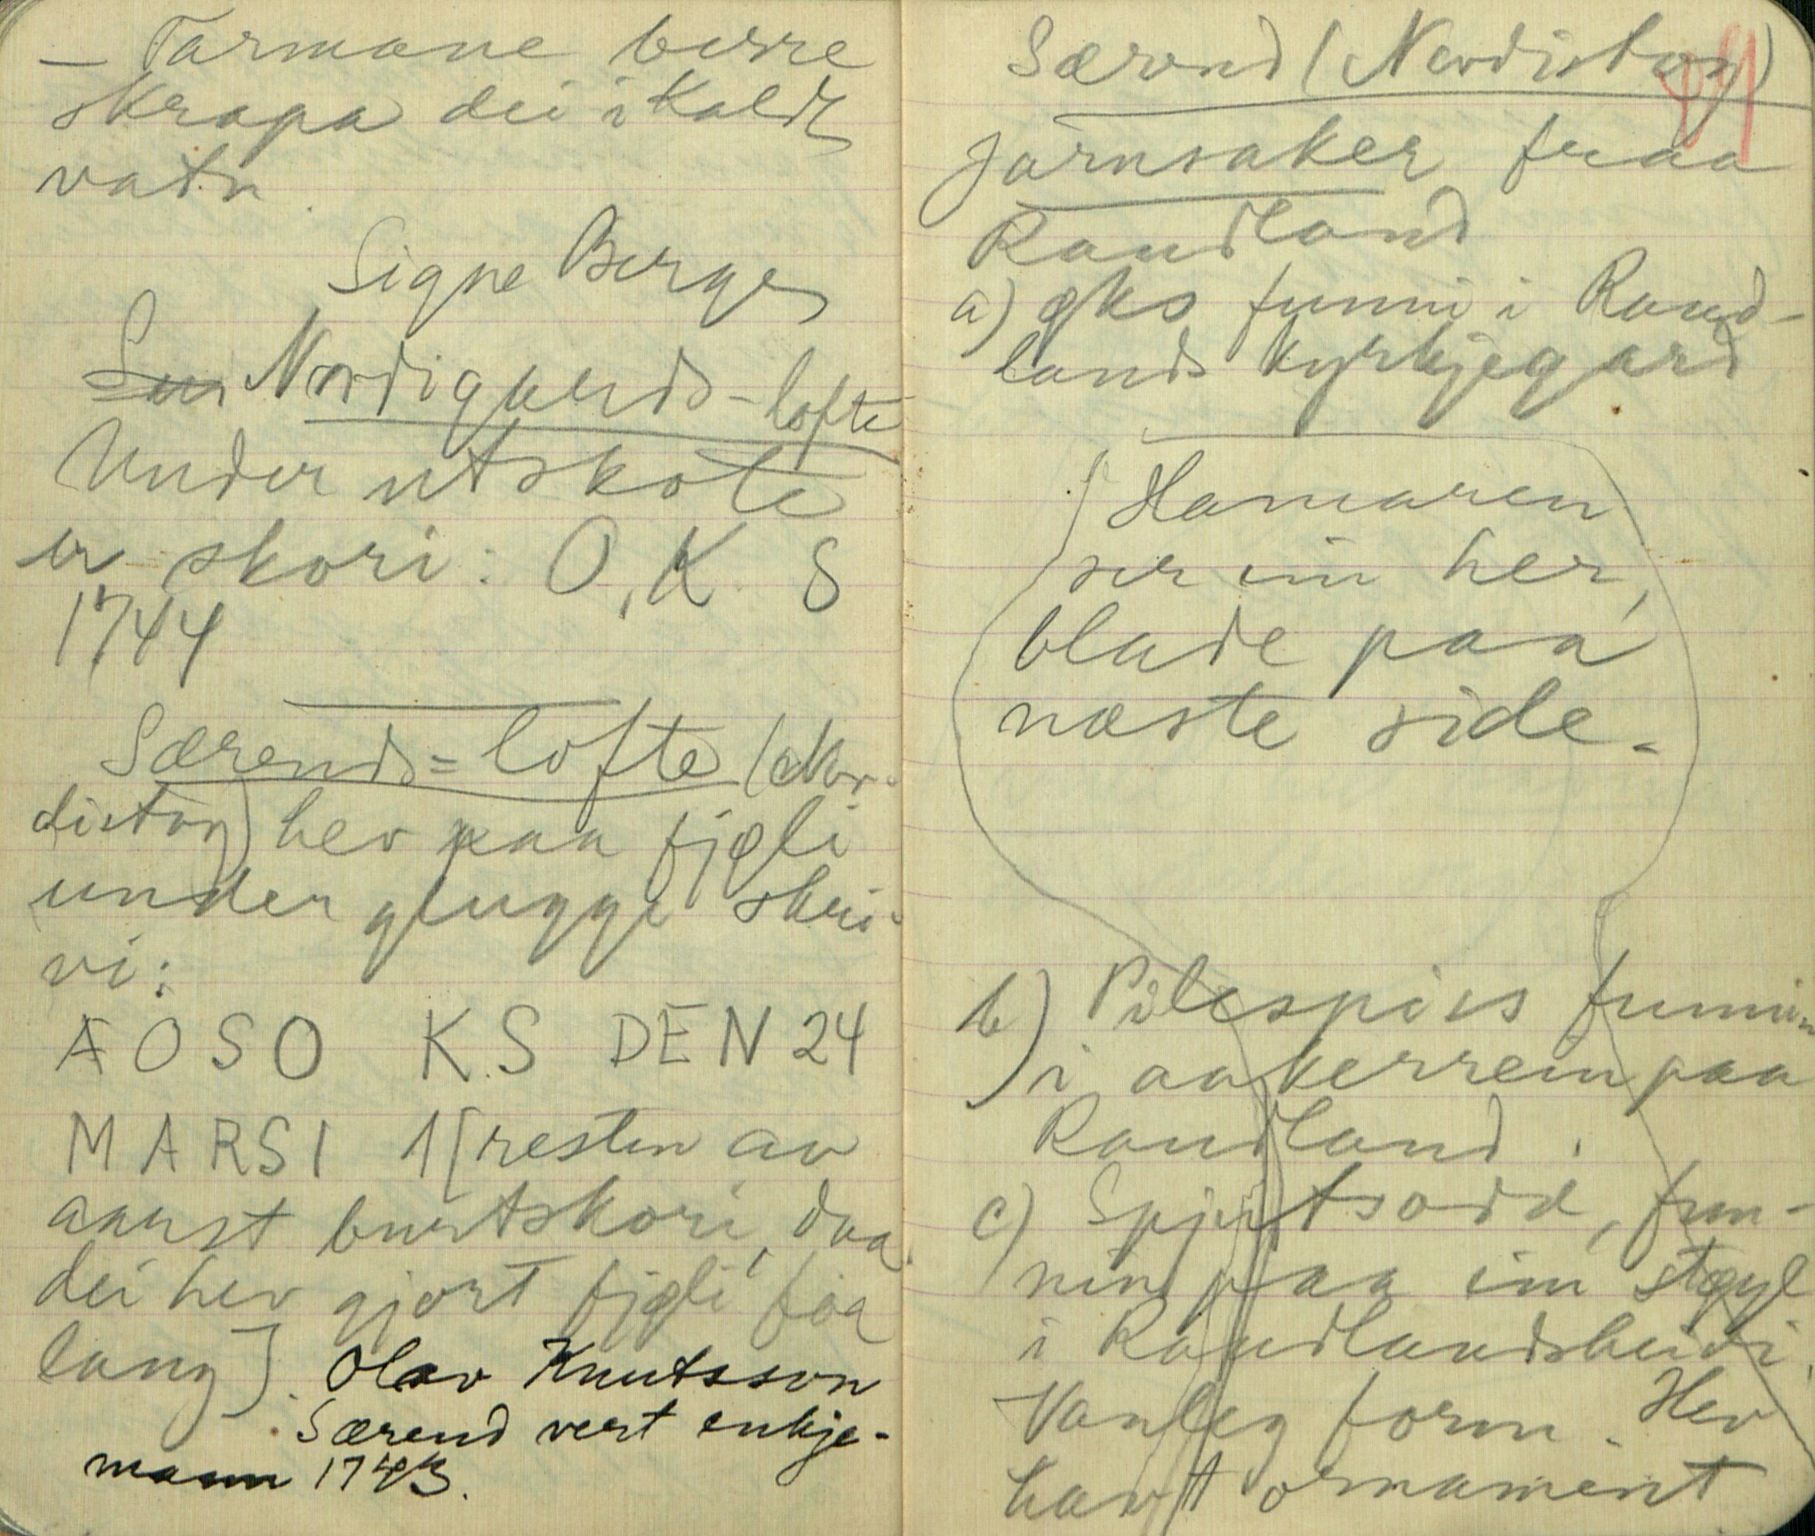 – Tarmane berre
skrapa dei i kaldt
vatn.
Signe Berge
Nordigards-lofte
Under utskote
er skori: O, K S
1744
Særends=lofte (Nor-
distog) hev paa fjøli
under glugge skri-
vi:
A O S O K.S DEN 24
MARSI 1 [resten av
aarst burtskori, daa
dei hev gjort fjøli faa
lang]. Olav Knutsson
Særend vert enkje-
mann 1743.
Særend (Nordistog)
Jarnsaker fraa
Raudland
a) øks funni i Raud-
lands kyrkjegard
Hamaren
ser ein her,
blade paa
næste side.
b) Pilespiss funnin
i aakerrein paa
Raudland.
c) Spjutsodd, fun-
nin paa ein støyl
i Raudlandsheidi.
Vanleg form. Hev
havt ornament